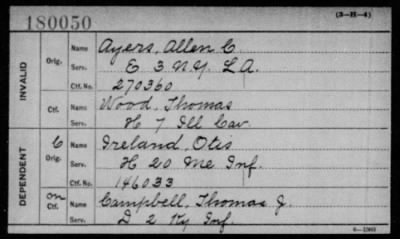 180050
(3-H-4)
INVALID
Orig.
Name Ayers, Allen C.
Serv. E 3 N.Y. L.A.
Ctf. No. 270360
Ctf.
Name Wood, Thomas
Serv. H 7 Ill Cav.
DEPENDENT
C
Orig.
Name Ireland, Otis
Serv. H 20 Me Inf.
Ctf. No. 146033
on
Ctf.
Name Campbell, Thomas J.
Serv. D 2 Ky Inf.